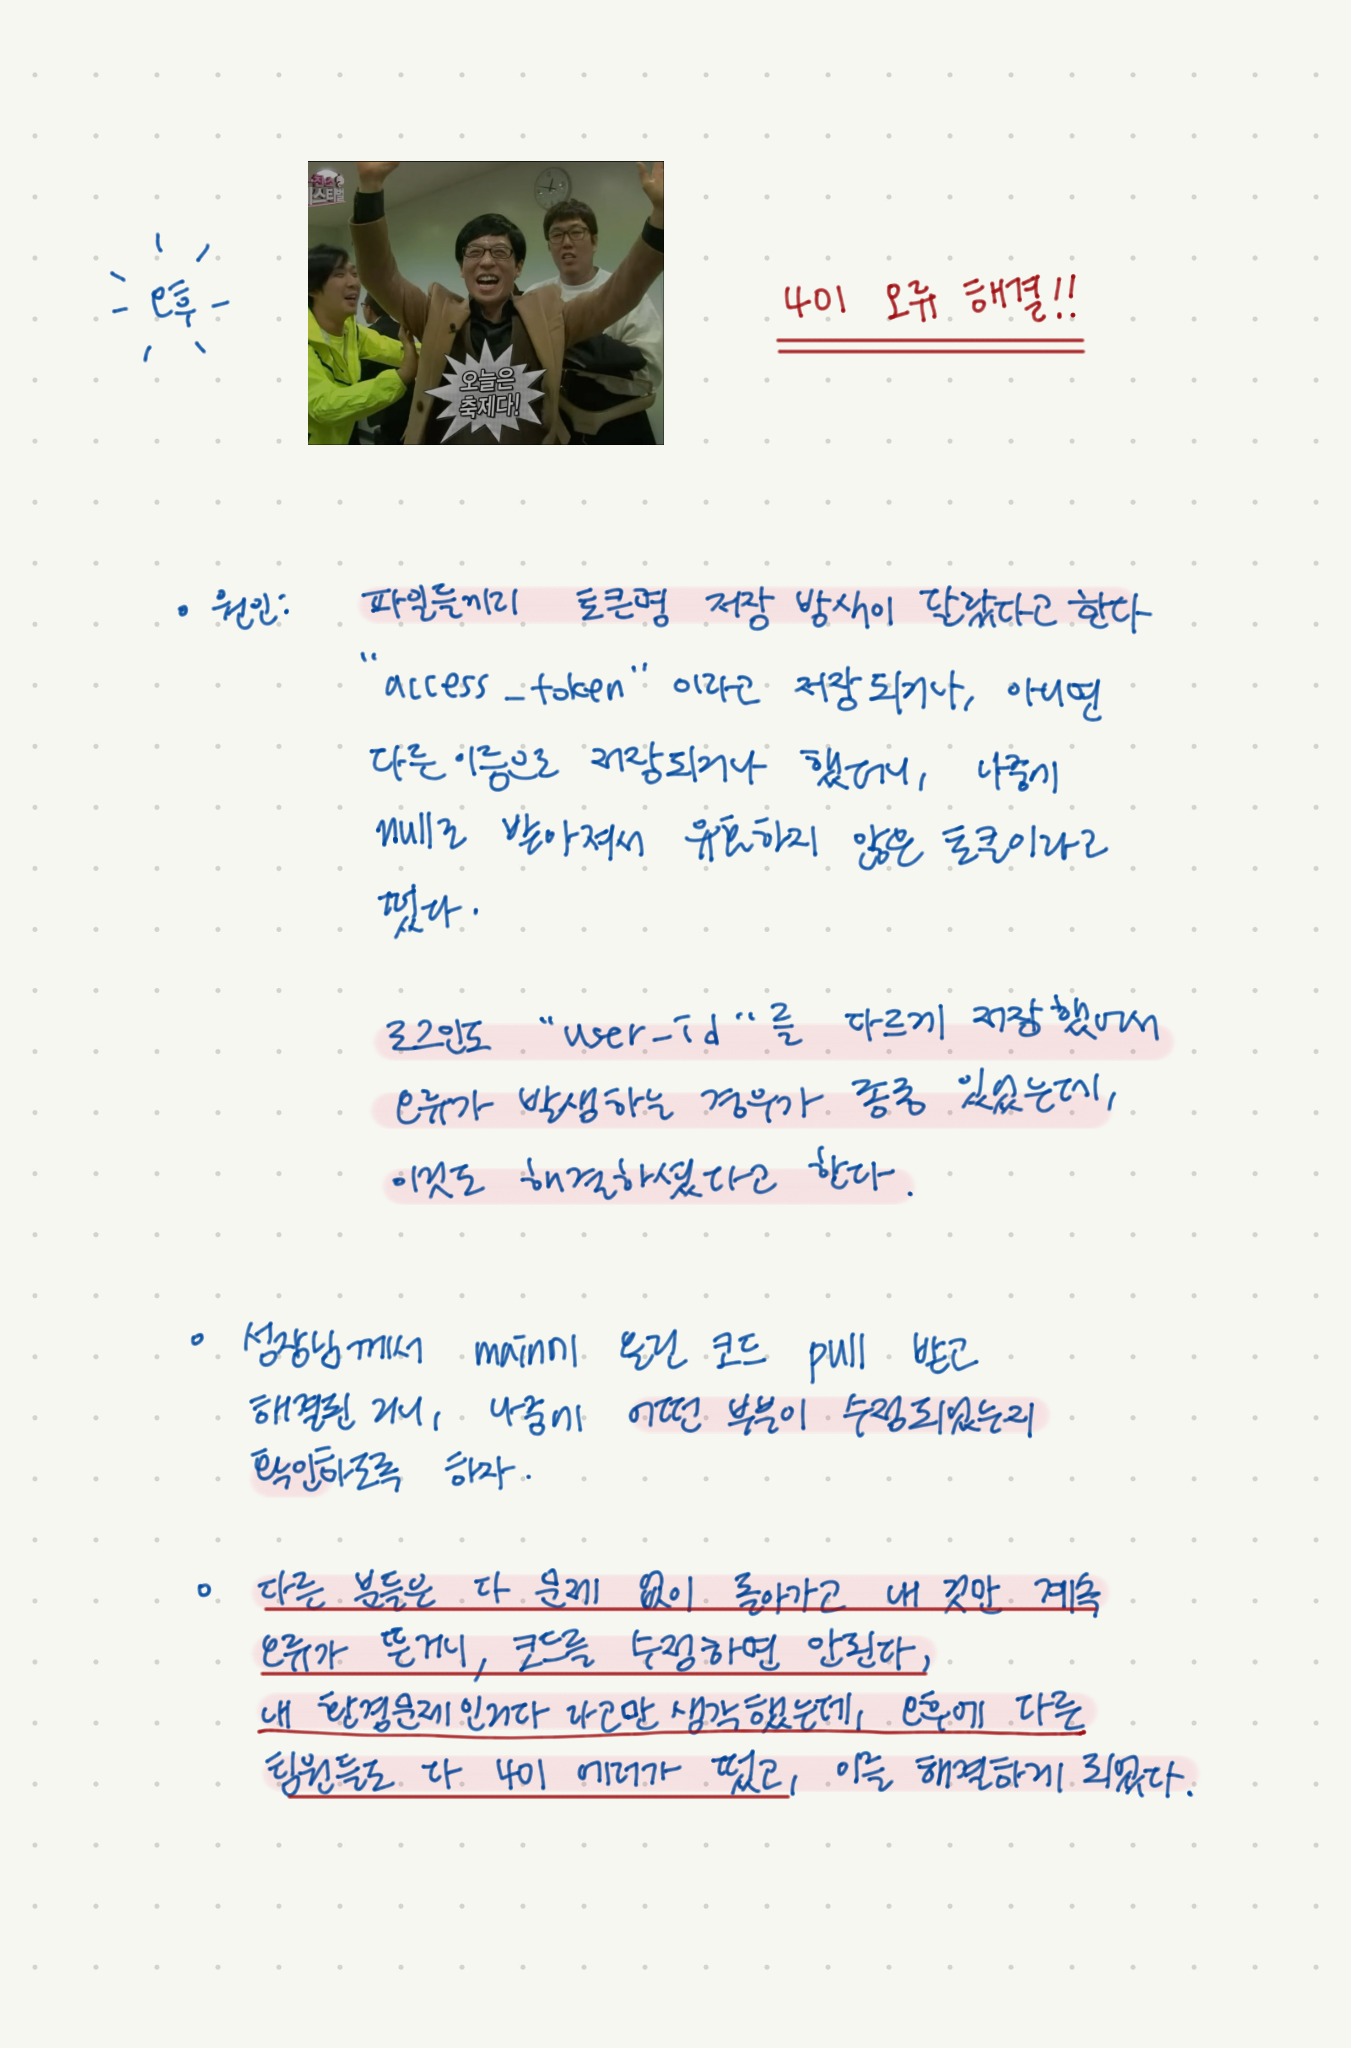 오후
오늘은
축제다!
401 오류 해결!!
원인: 파일들끼리 토큰명 저장 방식이 달랐다고 한다
"access_token" 이라고 저장되거나, 아니면
다른 이름으로 저장되거나 했더니, 나중에
null로 받아져서 유효하지 않은 토큰이라고
떴다.
로그인도 "user_id"를 다르게 저장했어서
오류가 발생하는 경우가 종종 있었는데,
이것도 해결하셨다고 한다.
성장님께서 main에 올린 코드 pull 받고
해결된 거니, 나중에 어떤 부분이 수정되었는지
확인하도록 하자.
다른 분들은 다 문제 없이 돌아가고 내 것만 계속
오류가 뜬거니, 코드를 수정하면 안된다,
내 환경문제인거다 라고만 생각했는데, 오후에 다른
팀원들도 다 401 에러가 떴고, 이를 해결하게 되었다.